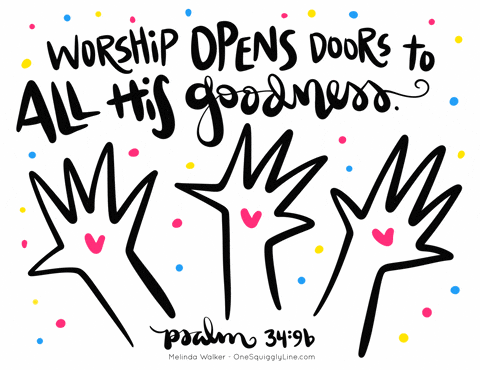 WORSHIP OPENS DOORS to
ALL HiS goodness.
psalm 34:9b
Melinda Walker - OneSquigglyLine.com